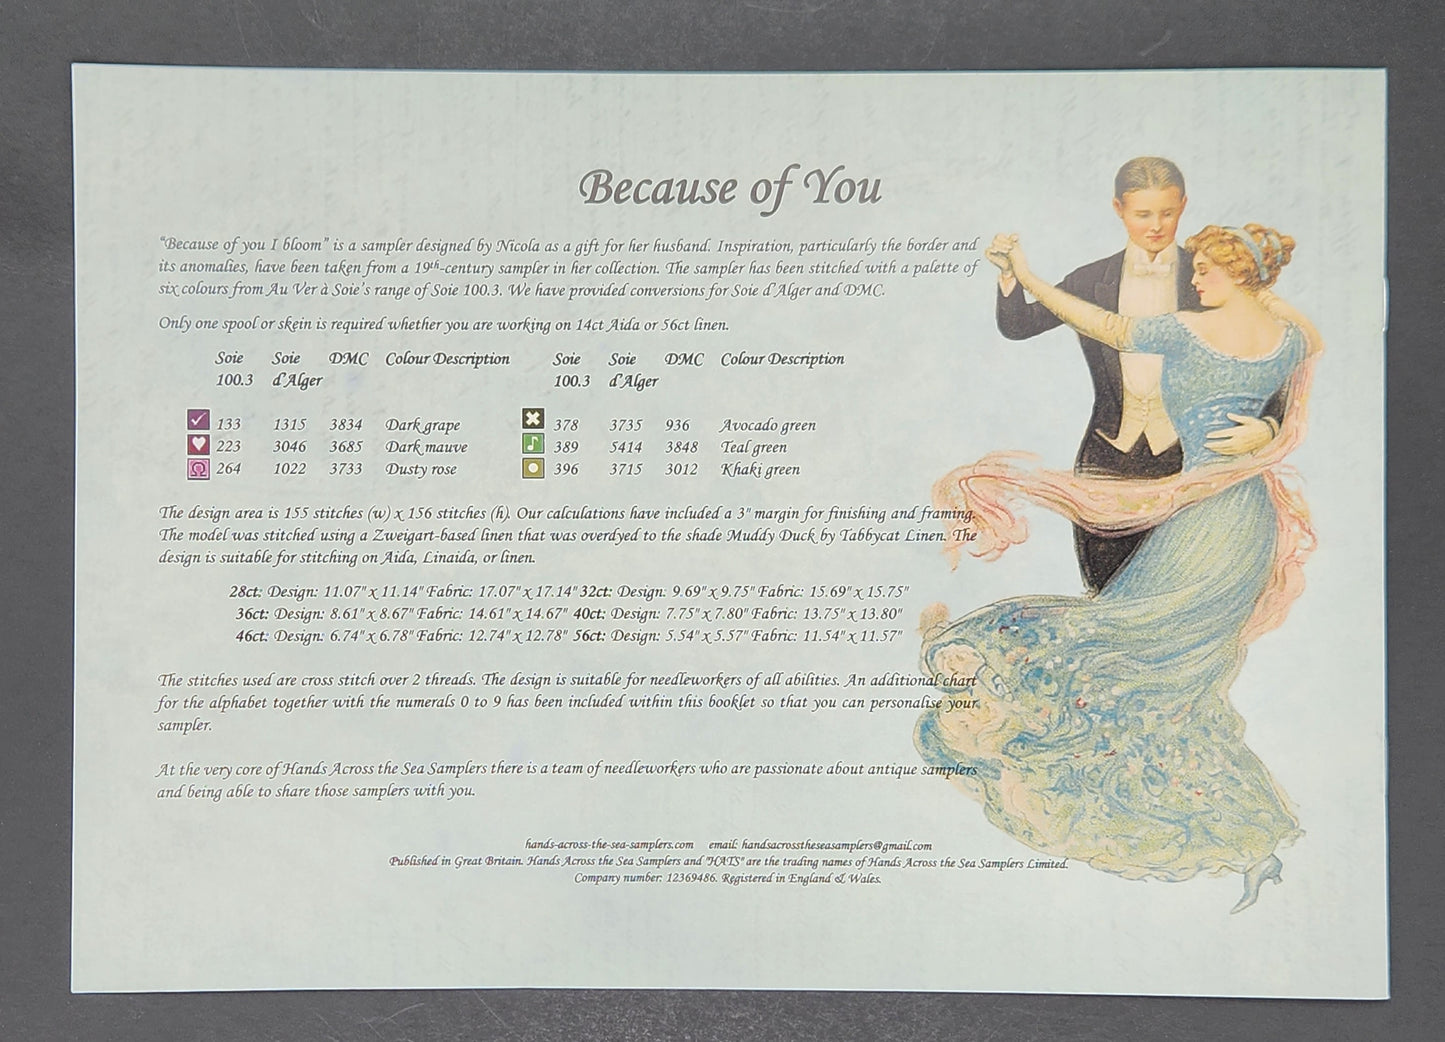 Because of You
“Because of you I bloom” is a sampler designed by Nicola as a gift for her husband. Inspiration, particularly the border and
its anomalies, have been taken from a 19th-century sampler in her collection. The sampler has been stitched with a palette of
six colours from Au Ver à Soie's range of Soie 100.3. We have provided conversions for Soie d'Alger and DMC.
Only one spool or skein is required whether you are working on 14ct Aida or 56ct linen.
Soie Soie DMC Colour Description Soie Soie DMC Colour Description
100.3 d'Alger 100.3 d'Alger
133 1315 3834 Dark grape 378 3735 936 Avocado green
223 3046 3685 Dark mauve 389 5414 3848 Teal green
264 1022 3733 Dusty rose 396 3715 3012 Khaki green
The design area is 155 stitches (w) x 156 stitches (h). Our calculations have included a 3" margin for finishing and framing.
The model was stitched using a Zweigart-based linen that was overdyed to the shade Muddy Duck by Tabbycat Linen. The
design is suitable for stitching on Aida, Linaida, or linen.
28ct: Design: 11.07" x 11.14" Fabric: 17.07" x 17.14" 32ct: Design: 9.69" x 9.75" Fabric: 15.69" x 15.75"
36ct: Design: 8.61" x 8.67" Fabric: 14.61" x 14.67" 40ct: Design: 7.75" x 7.80" Fabric: 13.75" x 13.80"
46ct: Design: 6.74" x 6.78" Fabric: 12.74" x 12.78" 56ct: Design: 5.54" x 5.57" Fabric: 11.54" x 11.57"
The stitches used are cross stitch over 2 threads. The design is suitable for needleworkers of all abilities. An additional chart
for the alphabet together with the numerals 0 to 9 has been included within this booklet so that you can personalise your
sampler.
At the very core of Hands Across the Sea Samplers there is a team of needleworkers who are passionate about antique samplers
and being able to share those samplers with you.
hands-across-the-sea-samplers.com email: handsacrosstheseasamplers@gmail.com
Published in Great Britain. Hands Across the Sea Samplers and "HATS" are the trading names of Hands Across the Sea Samplers Limited.
Company number: 12369486. Registered in England & Wales.